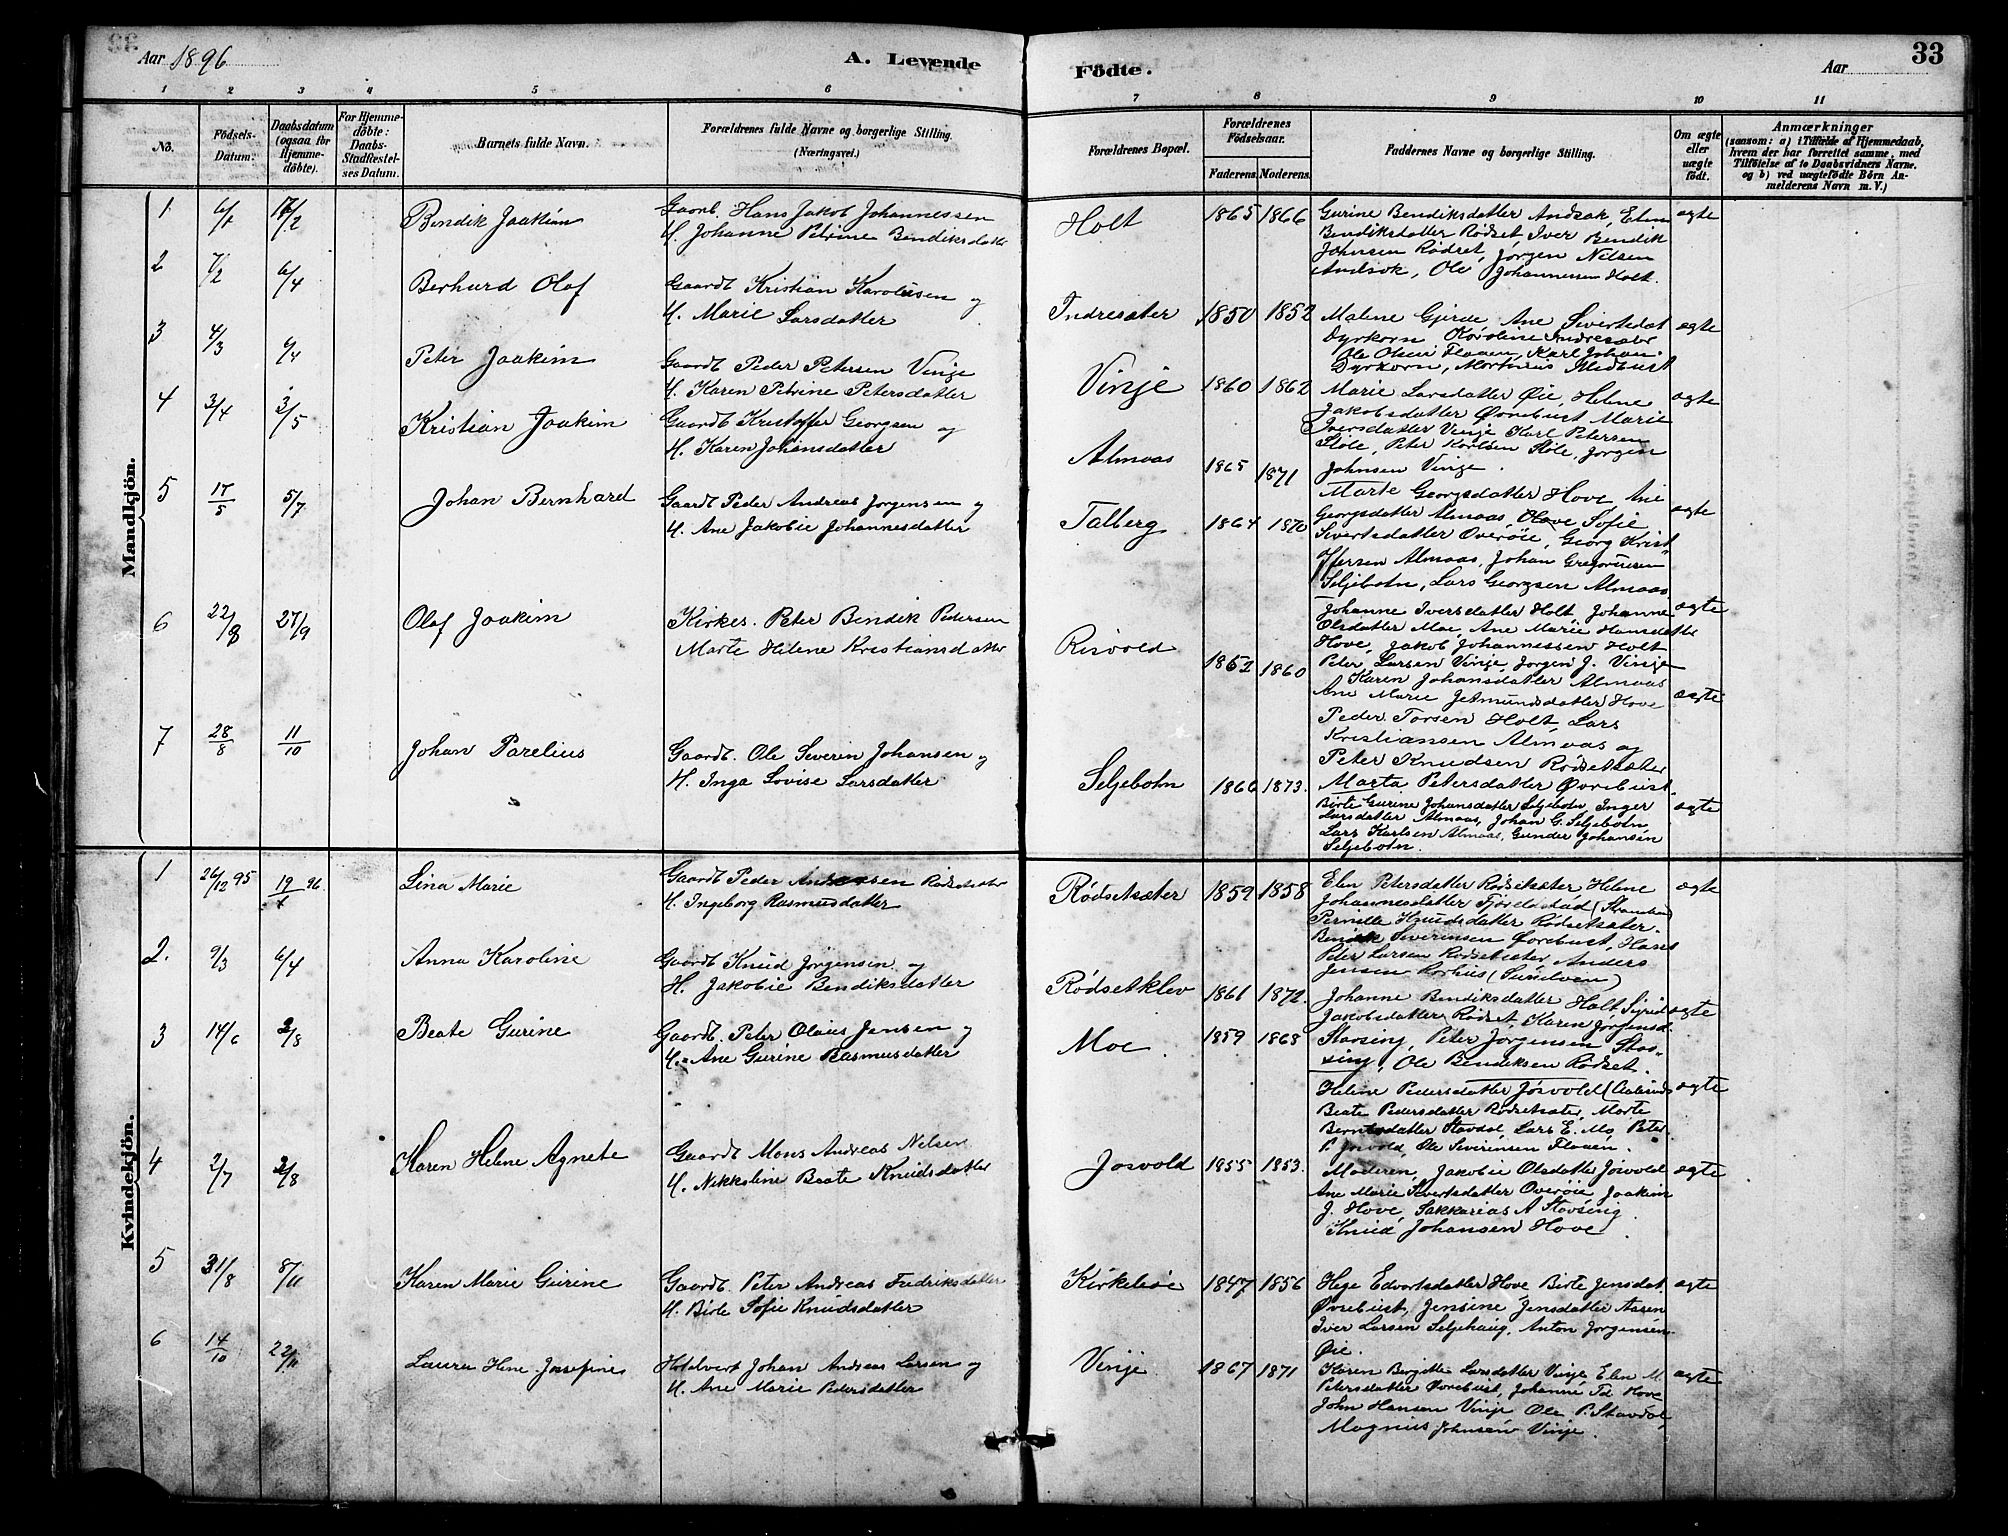 33
Aar 1896
A. Levende
Fødte.
Aar
1 2 3 4 5 6 7 8 9 10 11
No.
Fødsels-Datum.
Daabsdatum (ogsaa for Hjemmedøbte).
For Hjemmedøbte: Daabs-Stadfestelses Datum.
Barnets fulde Navn.
Forældrenes fulde Navne og borgerlige Stilling.
(Næringsvei.)
Forældrenes Bopæl.
Forældrenes Fødselsaar.
Faderens. Moderens.
Faddernes Navne og borgerlige Stilling.
Om ægte eller uægte født.
Anmærkninger
(saasom: a) i Tilfælde af Hjemmedaab, hvem der har forrettet samme, med Tilføielse af to Daabsvidners Navne. og b) ved uægtefødte Børn Anmelderens Navn m. V.)
Mandkjön.
1 6/1 16/2 Bendik Joakim
Gaardb. Hans Jakob Johannessen
H. Johanne Petrine Bendiksdatter
Holt 1865 1866
Gurine Bendiksdatter Andsok, Elen
Bendiksdatter Rødset Iver Bendik
Johnsen Rødset, Jørgen Nilsen
Andsok, Ole Johannessen Holt.
ægte
2 7/2 6/4 Berhard Olaf
Gaardb Kristian Karolusen og
H. Marie Larsdatter
Indresæter 1850 1852
Malene Gjerde Ane Sivertsdat
Dyrkorn Karoline Indresæter
Ole Olsen Flaaen, Karl Johan
Dyrkorn, Martinius Midbust
ægte
3 4/3 6/4 Peter Joakim
Gaardb Peder Petersen Vinje
H. Karen Petrine Petersdatter
Vinje 1860 1862
Marie Larsdatter Øie, Helene
Jakobsdatter Øvrebust Marie
Iversdatter Vinje Karl Petersen
Støle, Peter Karlsen Støle, Jørgen
Johnsen Vinje.
ægte
4 3/4 3/5 Kristian Joakim
Gaardb Kristoffer Georgsen og
H. Karen Johansdatter
Almaas 1865 1871
Marte Georgsdatter Hove Ane
Georgsdatter Almaas, Olave Sofie
Sivertsdatter Overøie, Georg Krist
offersen Almaas, Johan Gregoriusen
Seljebotn, Lars Georgsen Almaas
ægte
5 17/5 5/7 Johan Bernhard
Gaardb Peder Andreas Jørgensen og
H. Ane Jakobie Johannesdatter
Talberg 1864 1870
Johanne Iversdatter Holt Johanne
Olsdatter Moe, Ane Marie Hansdatter
Hove, Jakob Johannessen Holt
Peter Larsen Vinje, Jørgen J. Vinje
ægte
6 22/8 27/9 Olaf Joakim
Kirkes. Peter Bendik Pedersen
Marte Helene Kristiansdatter
Risvold 1862 1860
Karen Johansdatter Almaas
Ane Marie Jetmundsdatter Hove
Peder Torsen Holt, Lars
Kristiansen Almaas og
Peter Knudsen Rødsetsæter
ægte
7 28/8 11/10 Johan Parelius
Gaardb. Ole Severin Johansen og
H. Inga Lovise Larsdatter
Seljebotn 1866 1873.
Marta Petersdatter Øvrebust
Birte Gurine Johansdatter Seljebotn, Inger
Larsdatter Almaas, Johan G. Seljebotn
Lars Karlsen Almaas, Gunder Johansen
Seljebotn.
ægte
Kvindekjön.
1 26/12 95 19/1 96. Lina Marie
Gaardb Peder Andersen Rødsetsæter
H. Ingeborg Rasmusdatter
Rødsetsæter 1859 1858
Elen Petersdatter Rødsetsæter Helene
Johannesdatter
Pernille Knudsdatter Rødsetsæter.
Bendik Severinsen Øvrebust, Hans
Peter Larsen Rødsetsæter Anders
Jensen Korhus (Sunelven)
ægte
2. 9/3 6/4 Anna Karoline
Gaardb Knud Jørgensen og
H. Jakobie Bendiksdatter
Rødsetklev 1861 1872.
Johanne Bendiksdatter Holt Sigrid
Jakobsdatter Rødset, Karen Jørgensd.
Stavsing, Peter Jørgensen Stav-
sing, Ole Bendiksen Rødset.
ægte
3 14/6 2/8 Beate Gurine
Gaardb. Peter Olaus Jensen og
H. Ane Gurine Rasmusdatter
Moe. 1859 1868
Helene Pedersdatter Josvold (Aalesund
Beate Pedersdatter Rødsetsæter, Marte
Berntsdatter Stavdal, Lars E. Mo, Peter
P. Josvold, Ole Severinsen Flaaen.
ægte
4 2/7 2/8 Karen Helene Agnete
Gaardb Mons Andreas Nilsen
H. Nikkoline Beate Knudsdatter
Josvold 1855 1853.
Moderen, Jakobie Olsdatter Josvold
Ane Marie Sivertsdatter Overøie Joakim
J. Hove, Sakkarias A Stavsing
Knud Johansen Hove
ægte
5 31/8 8/11 Karen Marie Gurine
Gaardb. Peter Andreas Fredriksdatter
H. Birte Sofie Knudsdatter
Kirkeløe 1847 1856
Hege Edvartsdatter Hove Birte Jensdat
Øvrebust, Jensine Jensdatter Aasen
Iver Larsen Seljehaug, Anton Jørgensen
Øie.
ægte
6 14/10 22/11 Laura Hene Josefine
Hotelvert Johan Andreas Larsen og
H. Ane Marie Pedersdatter
Vinje 1867 1871
Karen Birgitte Larsdatter Vinje Elen M.
Petersdatter Øvrebust, Johanne Td Hove
John Hansen Vinje Ole P. Stavdal
Magnus Johnsen Vinje.
ægte